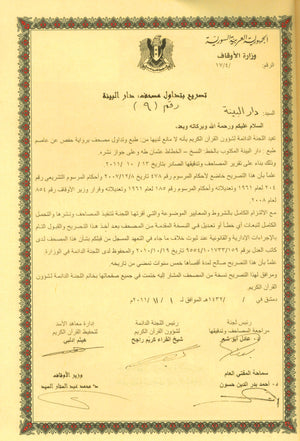 الجمهورية العربية السورية
وزارة الأوقاف
الرقم: ١٧/٤/
تصريح بتداول مصحف دار البينة
رقم (٩)
السيد: دار البينة
السلام عليكم ورحمة الله وبركاته وبعد:
تفيد اللجنة الدائمة لشؤون القرآن الكريم بأنه لا مانع لديها من: طبع وتداول مصحف برواية حفص عن عاصم
طبع: دار البينة المكتوب بالخط النسخ - الخطاط عثمان طه وعلى جواز نشره.
وذلك بناء على تقرير المصاحف وتدقيقها الصادر بتاريخ ١٣/ ١٠/ ٢٠١١.
علماً بأن هذا التصريح خاضع لأحكام المرسوم رقم ٤٧٨ تاريخ ٢٠٠٧/١٢/٨ وأحكام المرسوم التشريعي رقم
٢٠٤ تاريخ ١٩٦١ وتعديلاته وأحكام المرسوم رقم ١٨٥ تاريخ ١٩٦٦ وتعديلاته وقرار وزير الأوقاف رقم ٨٤
لعام ٢٠٠٨
مع الالتزام الكامل بالشروط والمعايير الموضوعة والتي أقرتها اللجنة لتنفيذ المصاحف ونشرها والتحمل
الكامل لتبعات أي خطأ أو تعديل في النسخة المقدمة من المصحف بعد أخذ هذا التصريح والقبول التام
بالإجراءات الإدارية والقانونية عند ثبوت خلاف ما جاء في التعهد المسجل من قبلكم بشأن بهذا أحد لدى
كاتب العدل بتاريخ ٢٠١٠/١٠/١٩ والمحفوظ لدى اللجنة الدائمة في الوزارة
علماً بأن هذا التصريح صالح لمدة أقصاها خمس سنوات تمضي من تاريخه.
ومرفق لهذا التصريح نسخة من المصحف المشار إليه ختمت في جميع صفحاتها بخاتم اللجنة الدائمة لشؤون
القرآن الكريم.
دمشق في / /١٤٣٢هـ الموافق لـ ١ / ١١ /٢٠١١م
رئيس لجنة
مراجعة المصاحف وتدقيقها
د. عادل أبو شعر
رئيس اللجنة الدائمة
شيخ القراء كريم راجح
إدارة معاهد الأسد
لتحفيظ القرآن الكريم
هيثم إدلبي
سماحة المفتي العام
د. أحمد بدر الدين حسون
وزير الأوقاف
د. محمد عبد الستار السيد